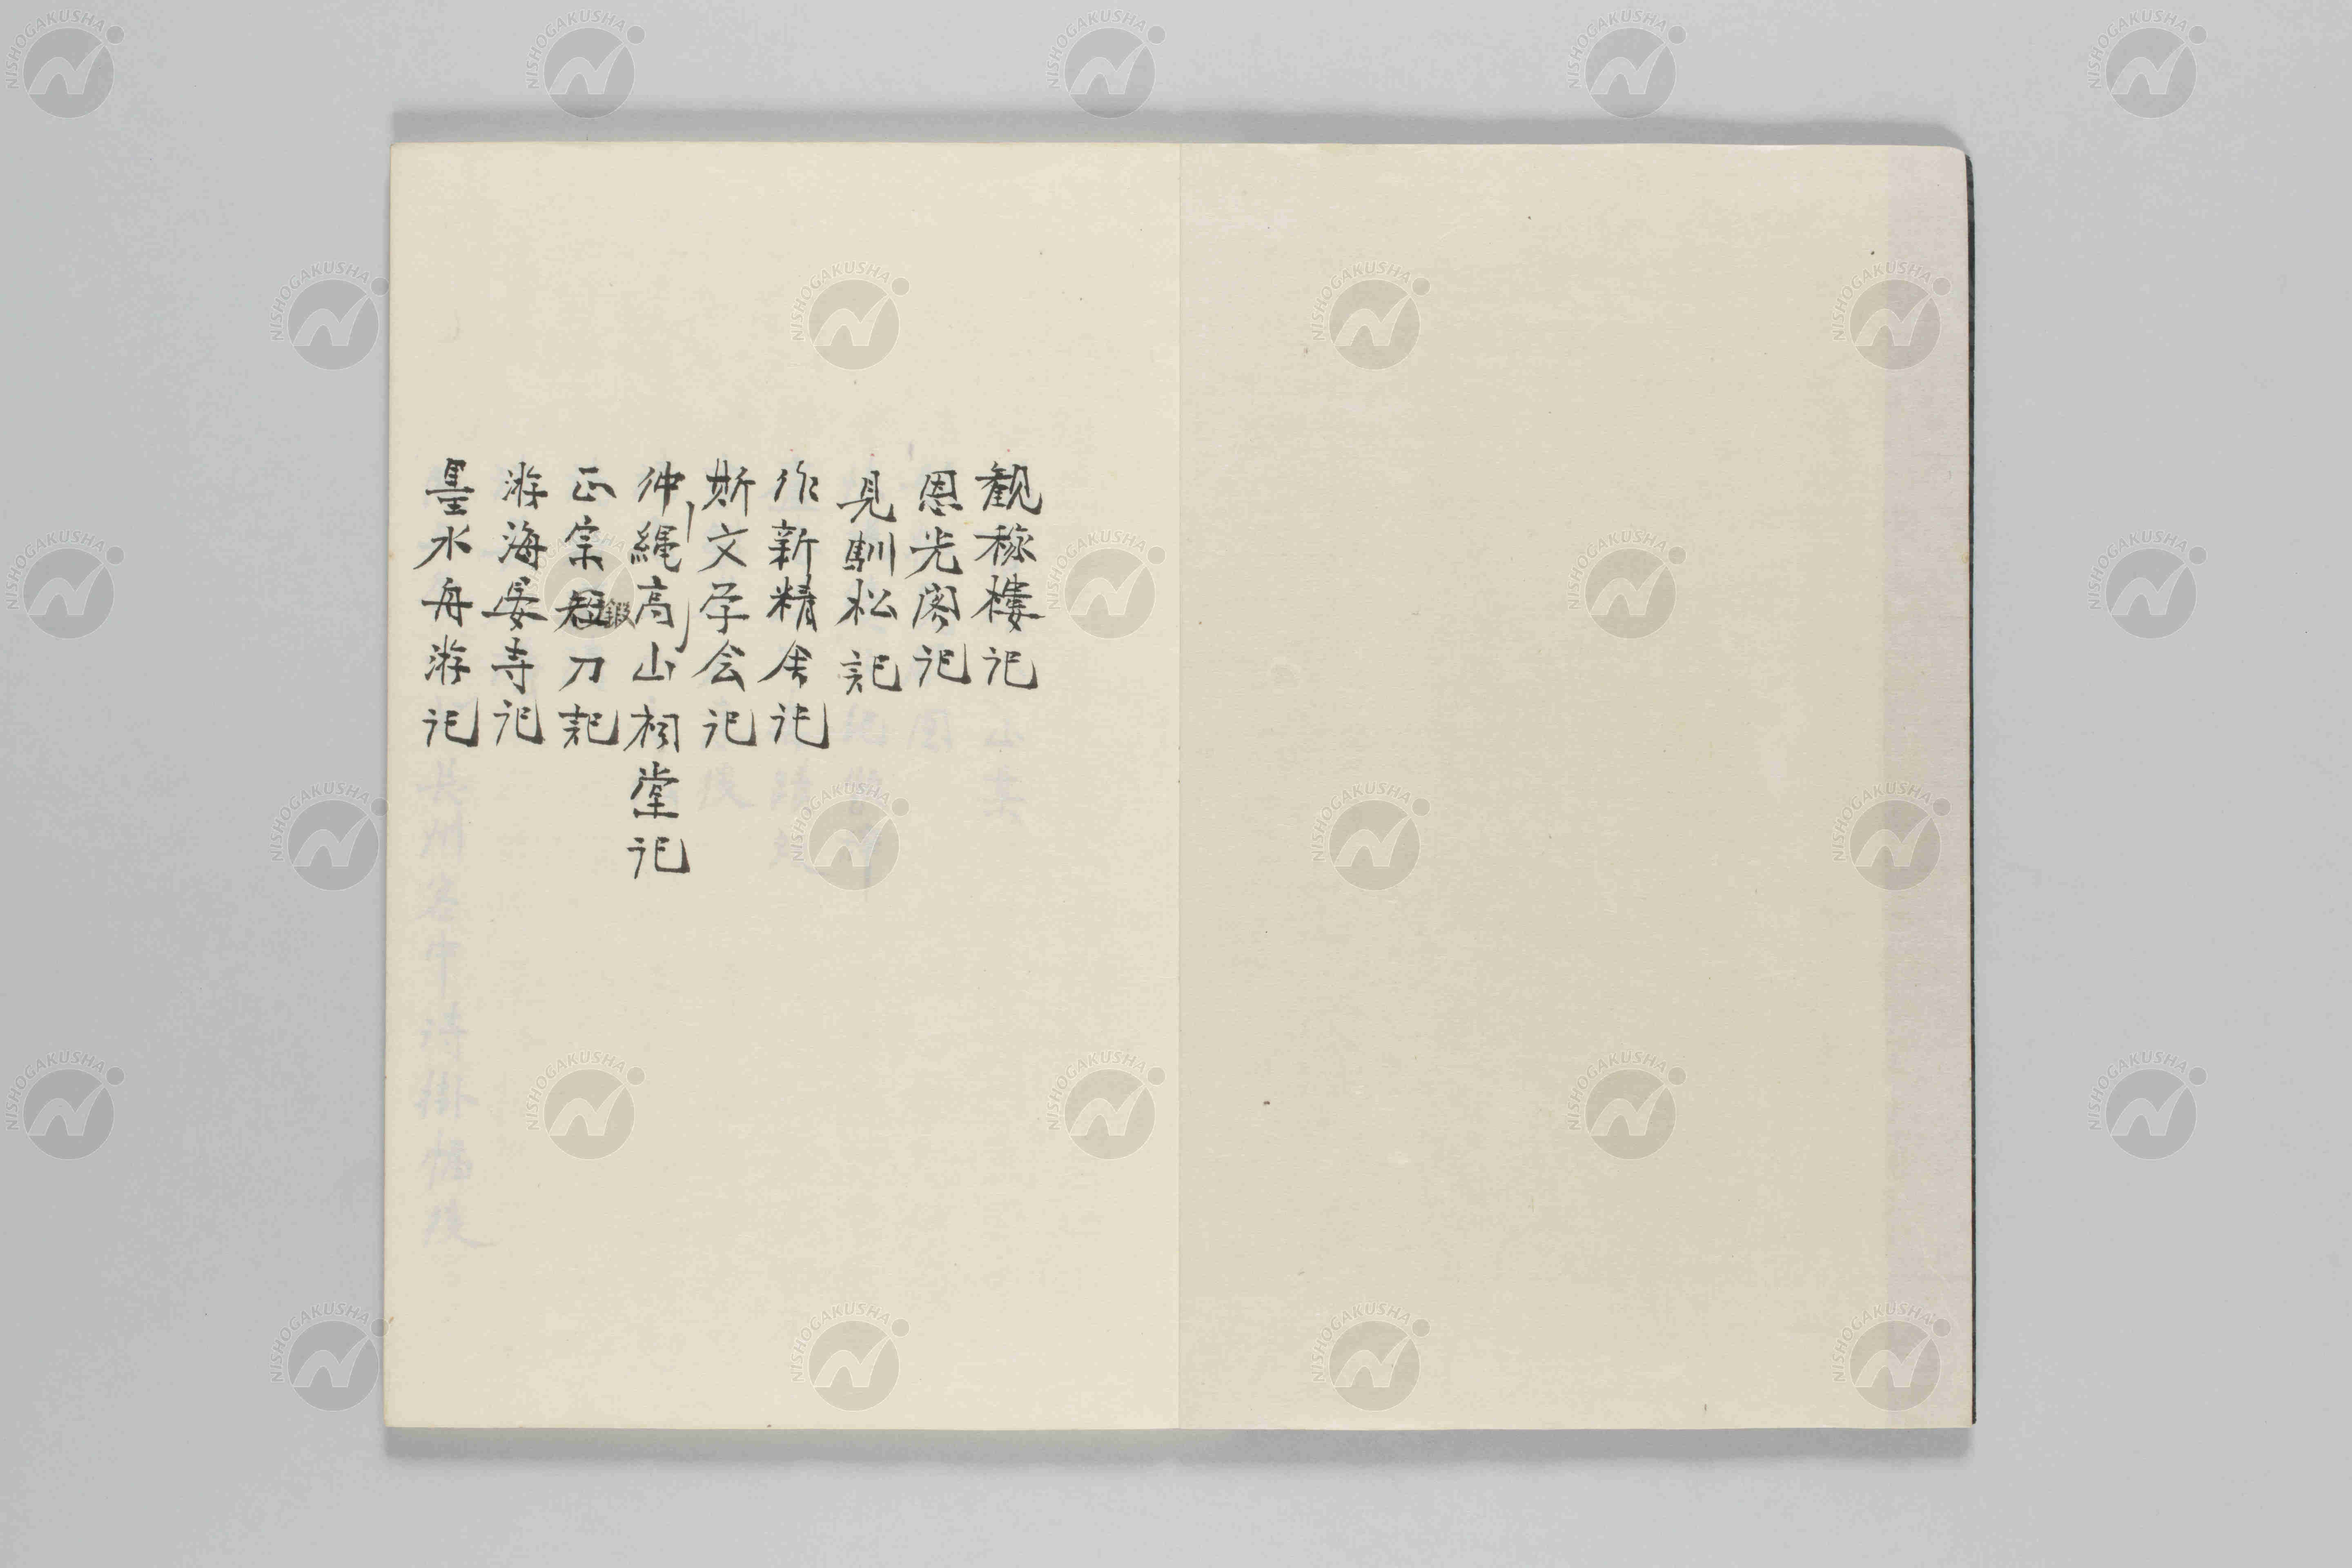 観稼楼記
恩光閣記
見馴松記
作新精舎記
斯文学会記
仲縄高山祠堂記
正宗鍛刀記
游海晏寺記
墨水舟游記
NISHOGAKUSHA